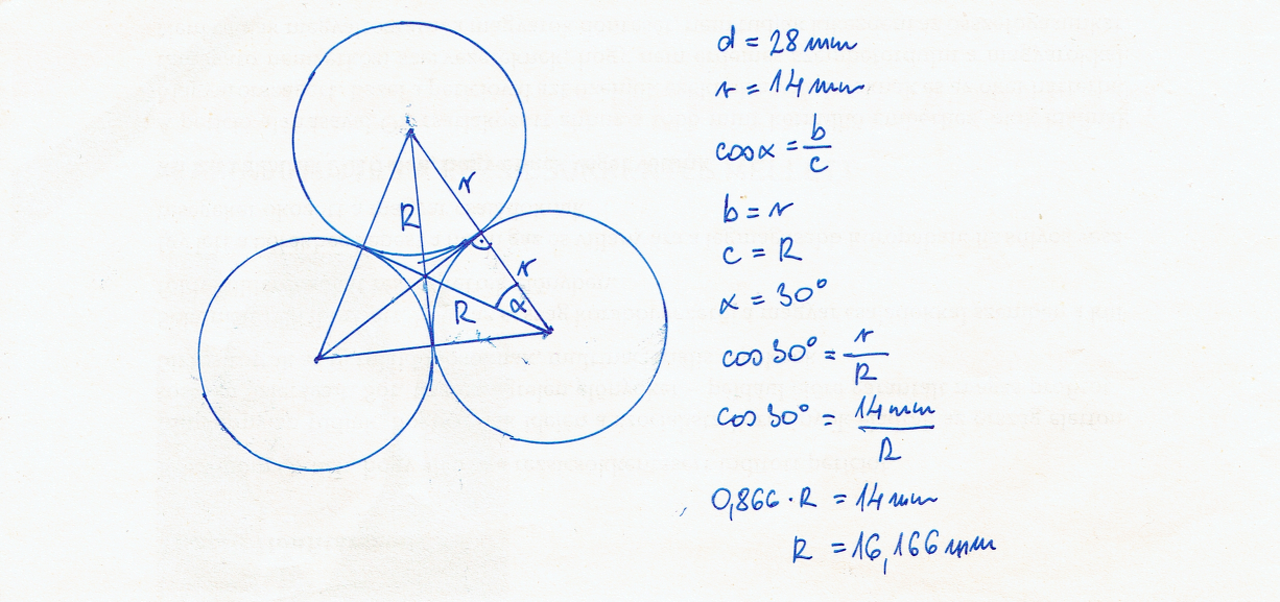 r
R
r
R
α
d = 28 mm
r = 14 mm
cos α = b/c
b = r
c = R
α = 30°
cos 30° = r/R
cos 30° = 14 mm/R
0,866 · R = 14 mm
R = 16,166 mm